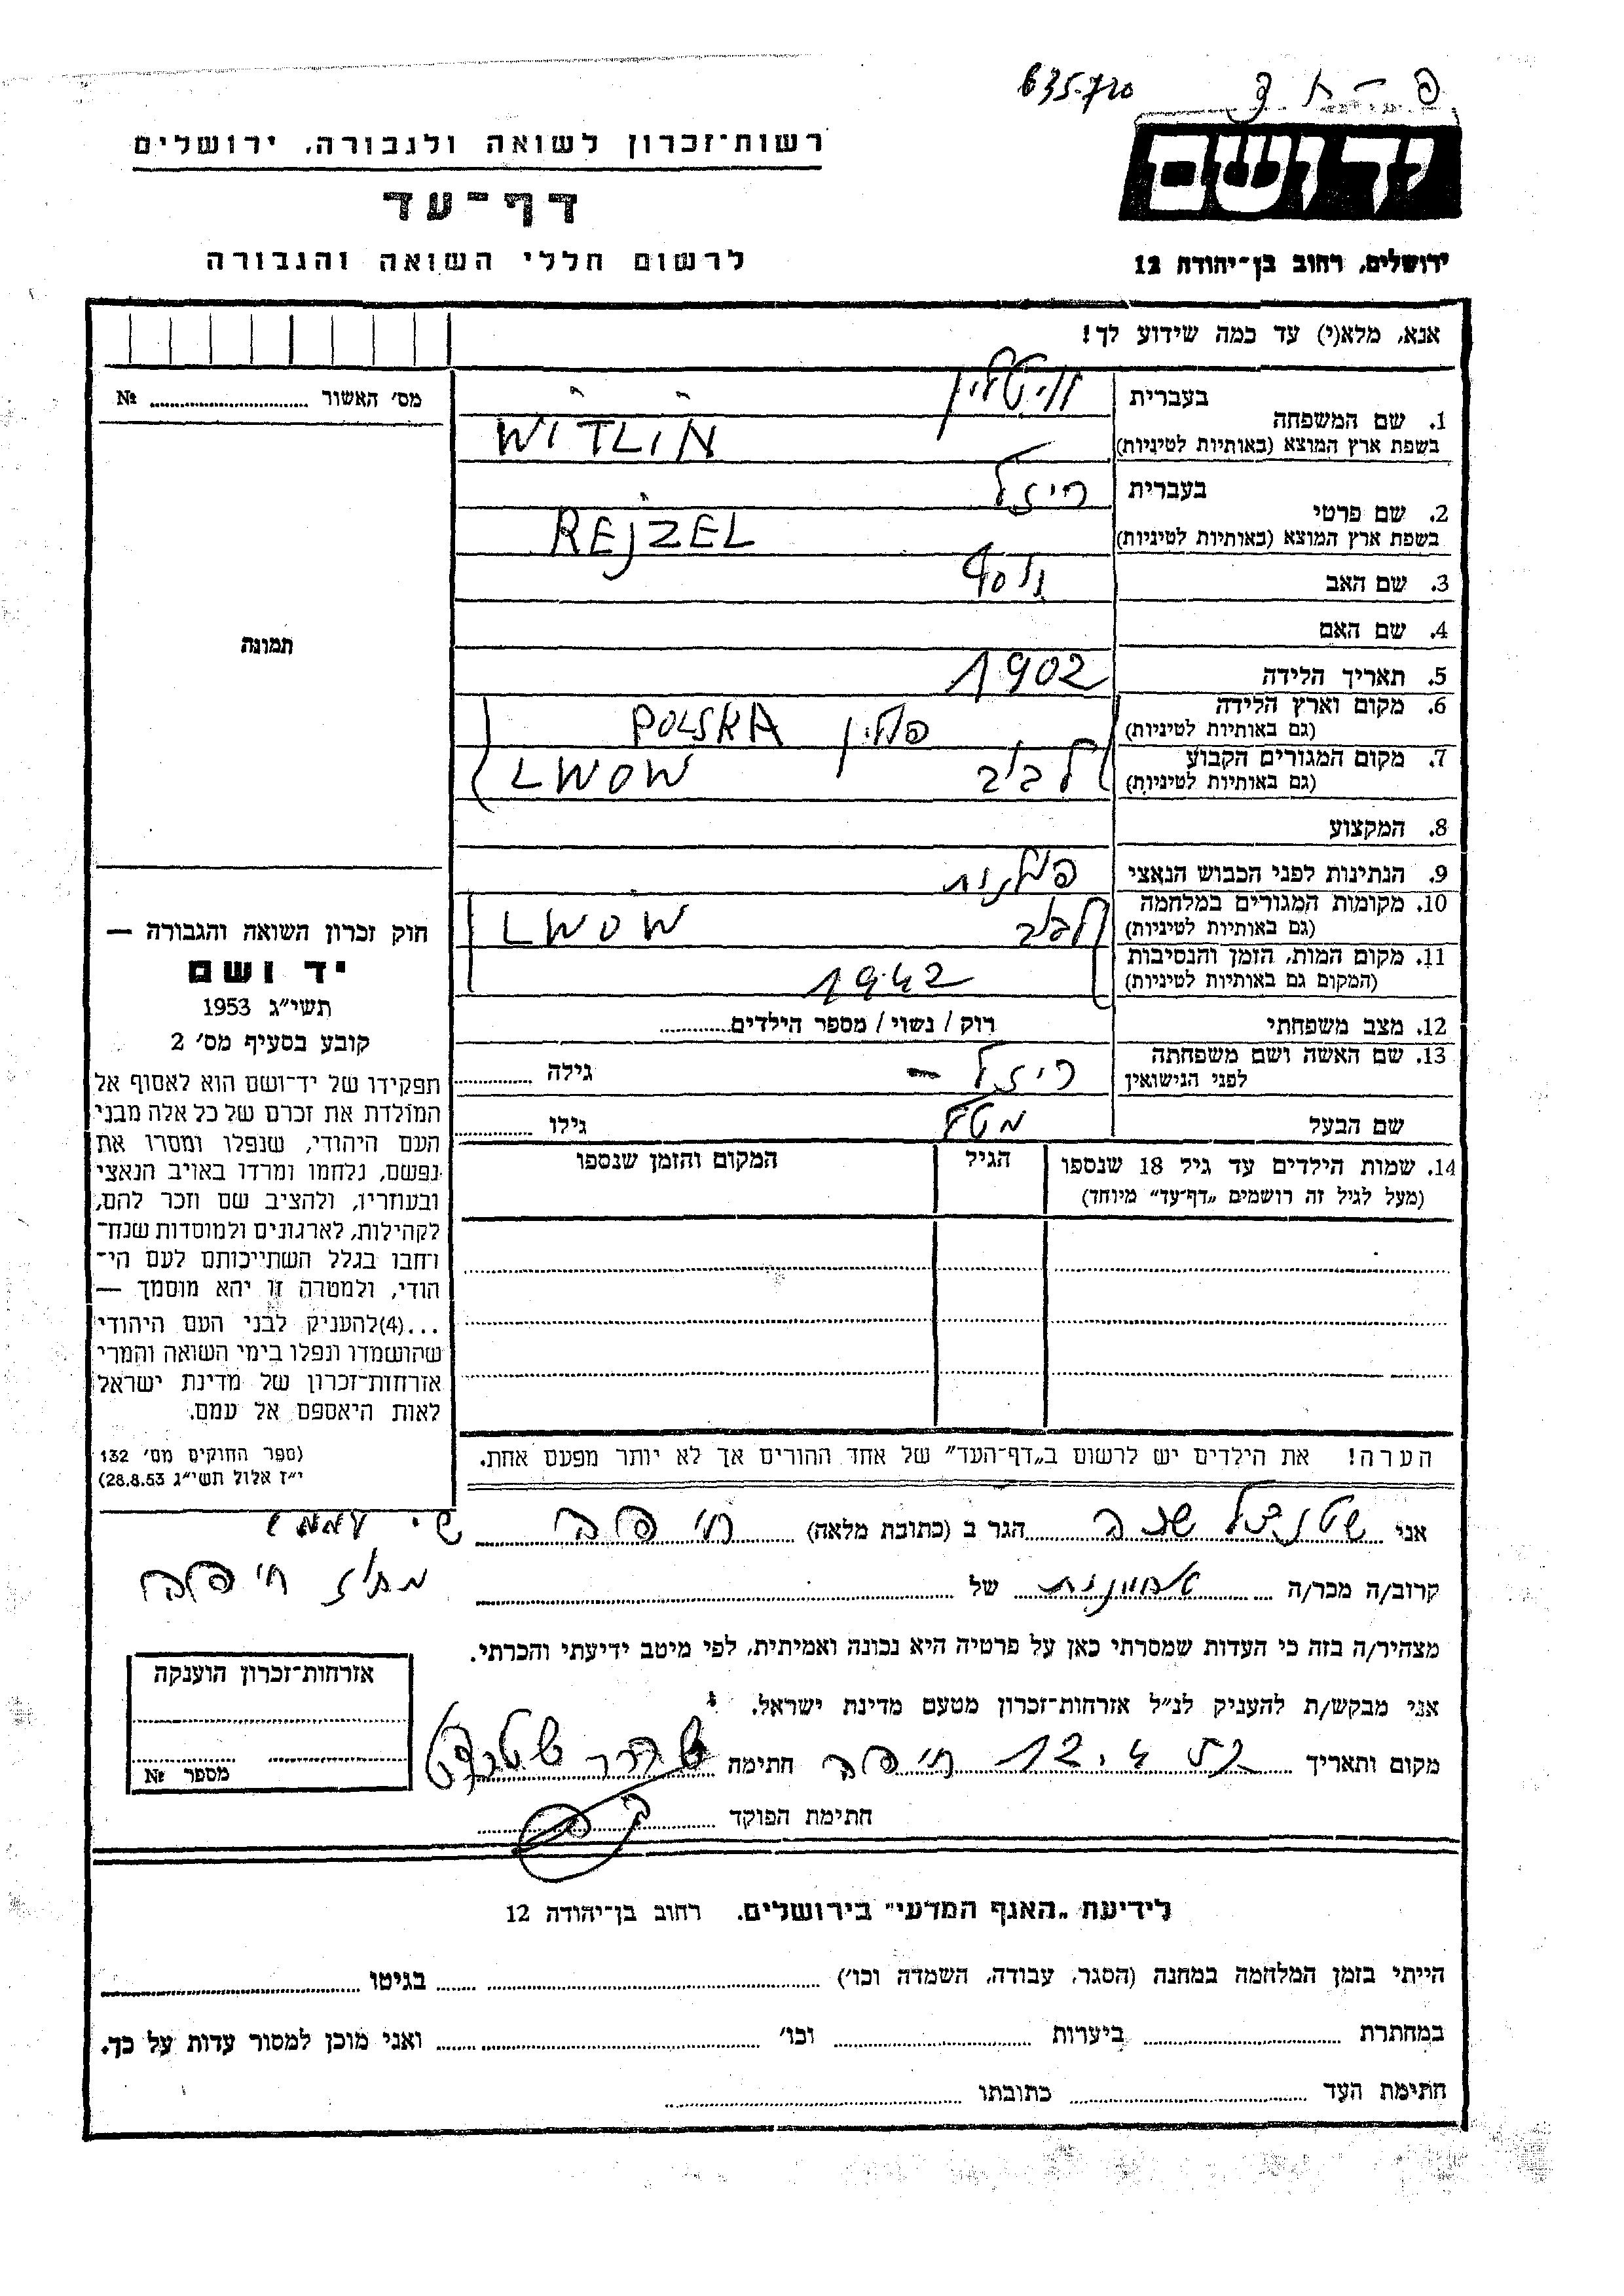 635-720
רשות־זכרון לשואה ולגבורה, ירושלים
דף־עד
לרשום חללי השואה והגבורה
יד ושם
ירושלים, רחוב בן־יהודה 12
אנא, מלא(י) עד כמה שידוע לך!
מס׳ האשור № 
1. שם המשפחה בעברית וויטלין
בשפת ארץ המוצא (באותיות לטיניות) WITLIN
2. שם פרטי בעברית רייזל
בשפת ארץ המוצא (באותיות לטיניות) REJZEL
3. שם האב
4. שם האם
תמונה
5. תאריך הלידה 1902
6. מקום וארץ הלידה (גם באותיות לטיניות) פולין POLSKA
7. מקום המגורים הקבוע (גם באותיות לטיניות) לבוב LWOW
8. המקצוע
9. הנתינות לפני הכבוש הנאצי פולנית
10. מקומות המגורים במלחמה (גם באותיות לטיניות) לבוב LWOW
11. מקום המות, הזמן והנסיבות (המקום גם באותיות לטיניות) 1942
12. מצב משפחתי רוק / נשוי / מספר הילדים
13. שם האשה ושם משפחתה לפני הנישואין רייזל – גילה
שם הבעל גילו
14. שמות הילדים עד גיל 18 שנספו הגיל המקום והזמן שנספו
(מעל לגיל זה רושמים „דף־עד” מיוחד)
חוק זכרון השואה והגבורה —
יד ושם
תשי״ג 1953
קובע בסעיף מס׳ 2
תפקידו של יד־ושם הוא לאסוף אל
המולדת את זכרם של כל אלה מבני
העם היהודי, שנפלו ומסרו את
נפשם, נלחמו ומרדו באויב הנאצי
ובעוזריו, ולהציב שם וזכר להם,
לקהילות, לארגונים ולמוסדות שנח־
רחבו בגלל השתייכותם לעם הי־
הודי, ולמטרה זו יהא מוסמך —
...(4)להעניק לבני העם היהודי
שהושמדו ונפלו בימי השואה והמרי
אזרחות־זכרון של מדינת ישראל
לאות היאספם אל עמם.
(ספר החוקים מס׳ 132
י״ז אלול תשי״ג 28.8.53)
הערה! את הילדים יש לרשום ב„דף־העד” של אחד ההורים אך לא יותר מפעם אחת.
אני הגר ב (כתובת מלאה) חיפה
קרוב/ה מכר/ה של חיפה
מצהיר/ה בזה כי העדות שמסרתי כאן על פרטיה היא נכונה ואמיתית, לפי מיטב ידיעתי והכרתי.
אני מבקש/ת להעניק לנ״ל אזרחות־זכרון מטעם מדינת ישראל.
מקום ותאריך חיפה חתימה
חתימת הפוקד
אזרחות־זכרון הוענקה
מספר №
לידיעת „האגף המדעי” בירושלים. רחוב בן־יהודה 12
הייתי בזמן המלחמה במחנה (הסגר, עבודה, השמדה וכו׳) בגיטו
במחתרת ביערות וכו׳ ואני מוכן למסור עדות על כך.
חתימת העד כתובתו